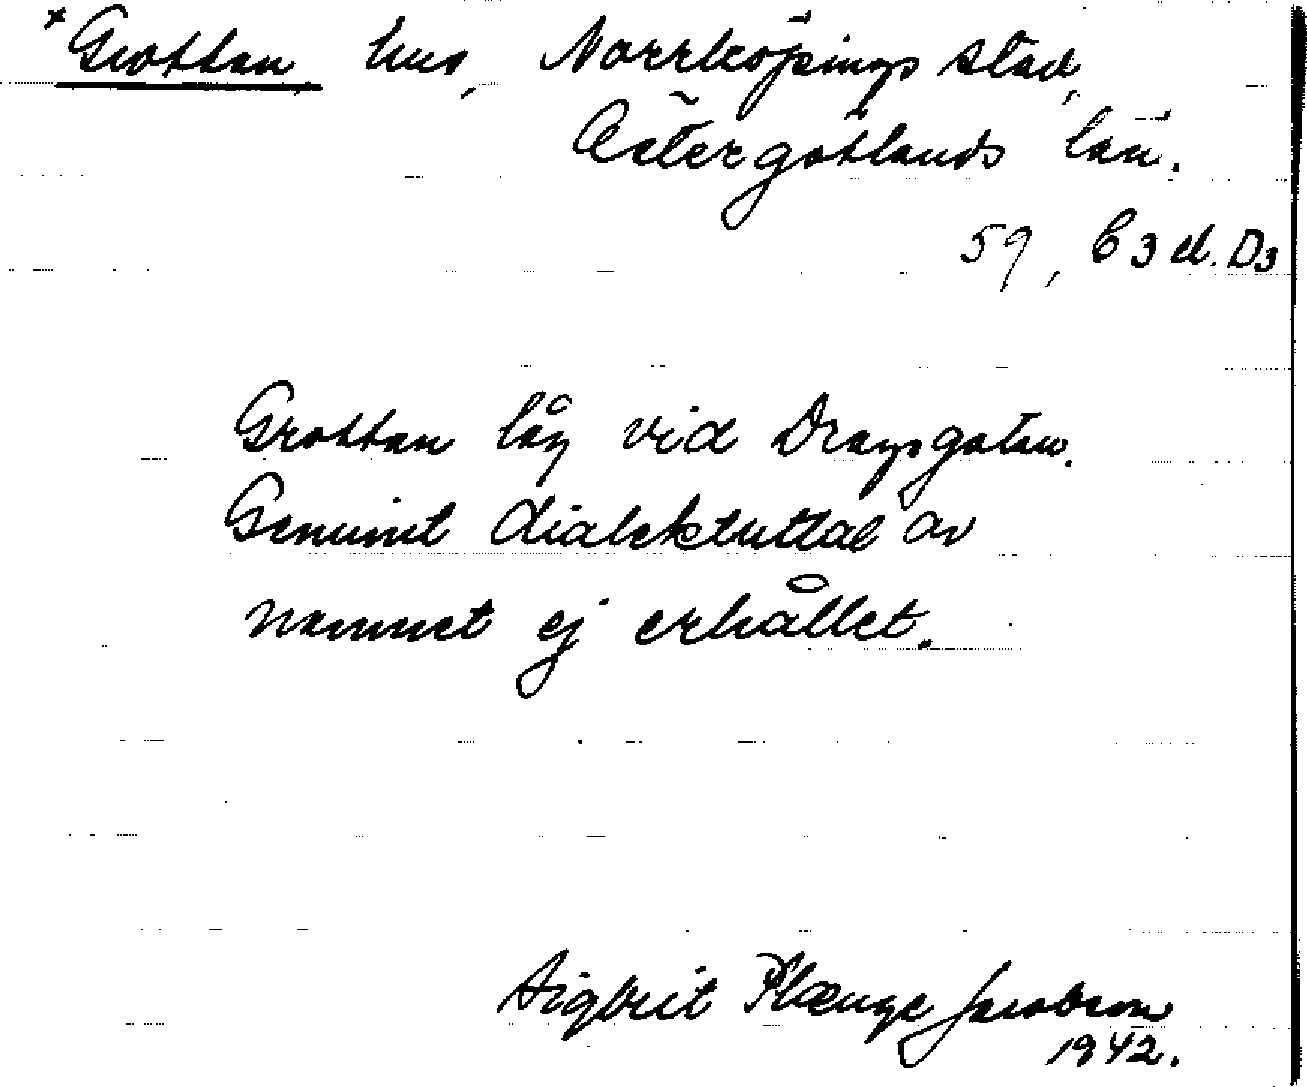 *Grottan, hus, Norrköpings stad,
Östergötlands län.
59, C3 d. D3
Grottan låg vid Dragsgatan.
Genuint dialektuttal av
namnet ej erhållet.
Sigbrit Plænge Jacobson
1942.